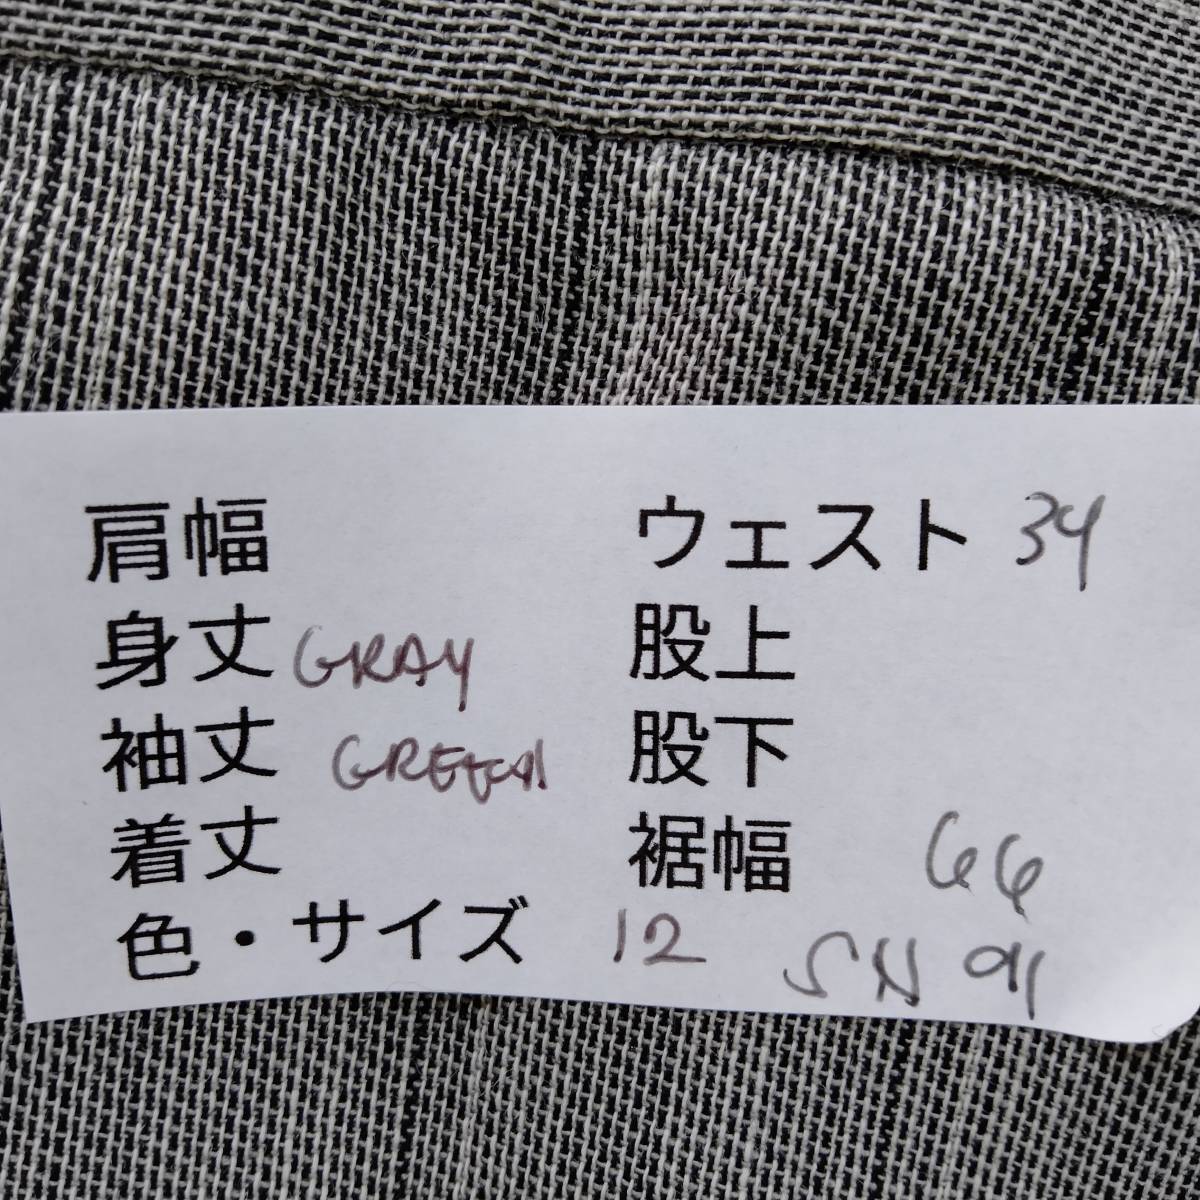 肩幅
身丈 GRAY
袖丈 GREEN
着丈
色・サイズ 12
ウェスト 34
股上
股下
裾幅 66
SN 91